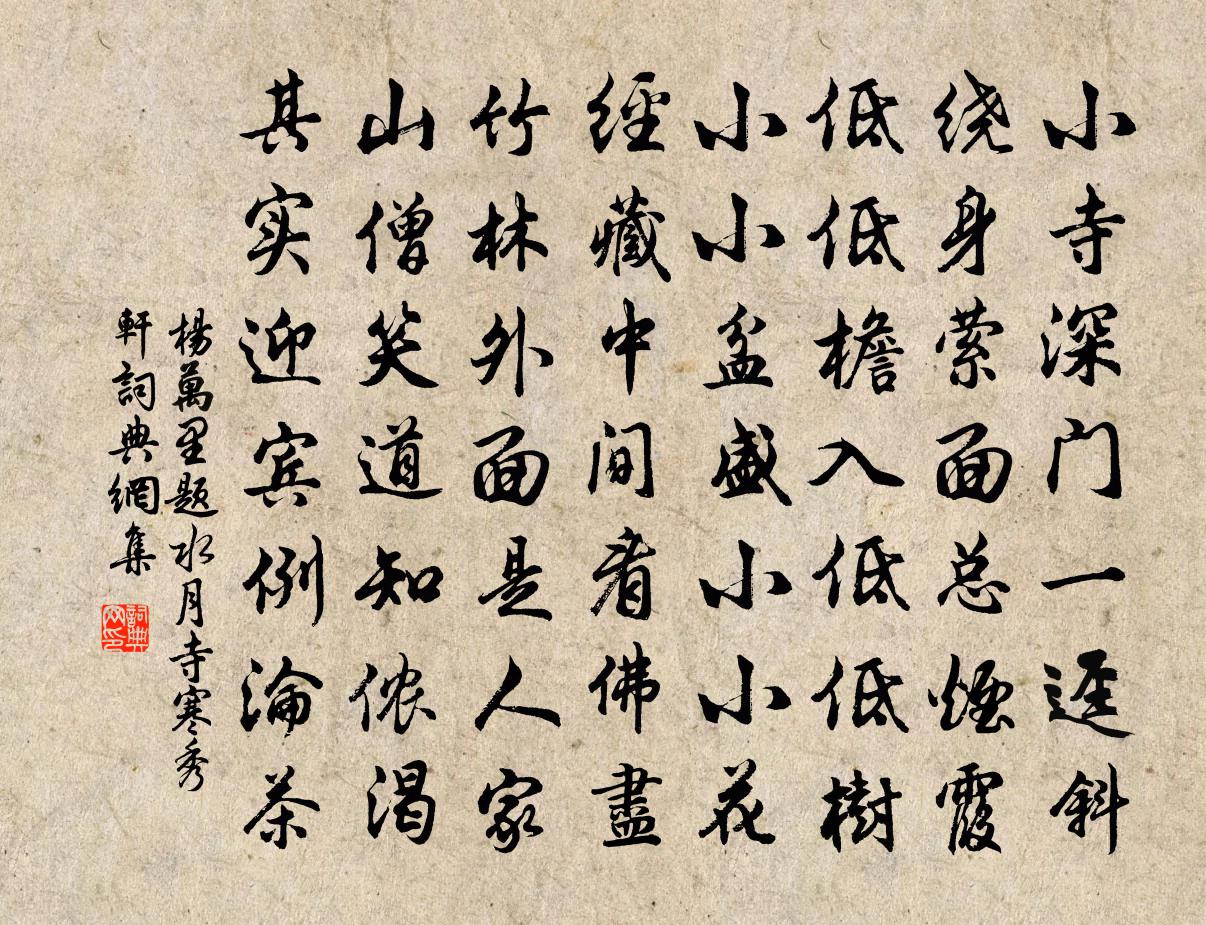 小寺深门一迳斜
绕身萦面总烟霞
低低檐入低低樹
小小盆盛小小花
經藏中间看佛畫
竹林外面是人家
山僧笑道知侬渴
其实迎宾例瀹茶
楊萬里题水月寺寒秀
軒詞典網集
詞典
网印